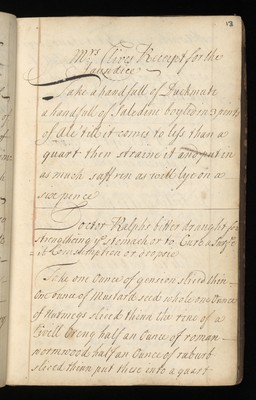 18
Mrs Clives Receipt for the
Jaundice
Take a handfull of Duckmeate
a handfull of Saledine boyled in 3 pints
of Ale till it comes to less than a
quart then straine it and put in
as much saffren as will lye on a
sixpence
Doctor Ralphs bitter draught for
strengthening ye stomach or to Curb a
it Consumption or dropsie
Take one Ounce of gension sliced thin
One ounce of Mustard seed whole one Ounce
of Nutmegs sliced thinn the rine of a
Sivell Oreng half an Ounce of roman
wormwood half an Ounce of rubarb
sliced thinn put these into a quart